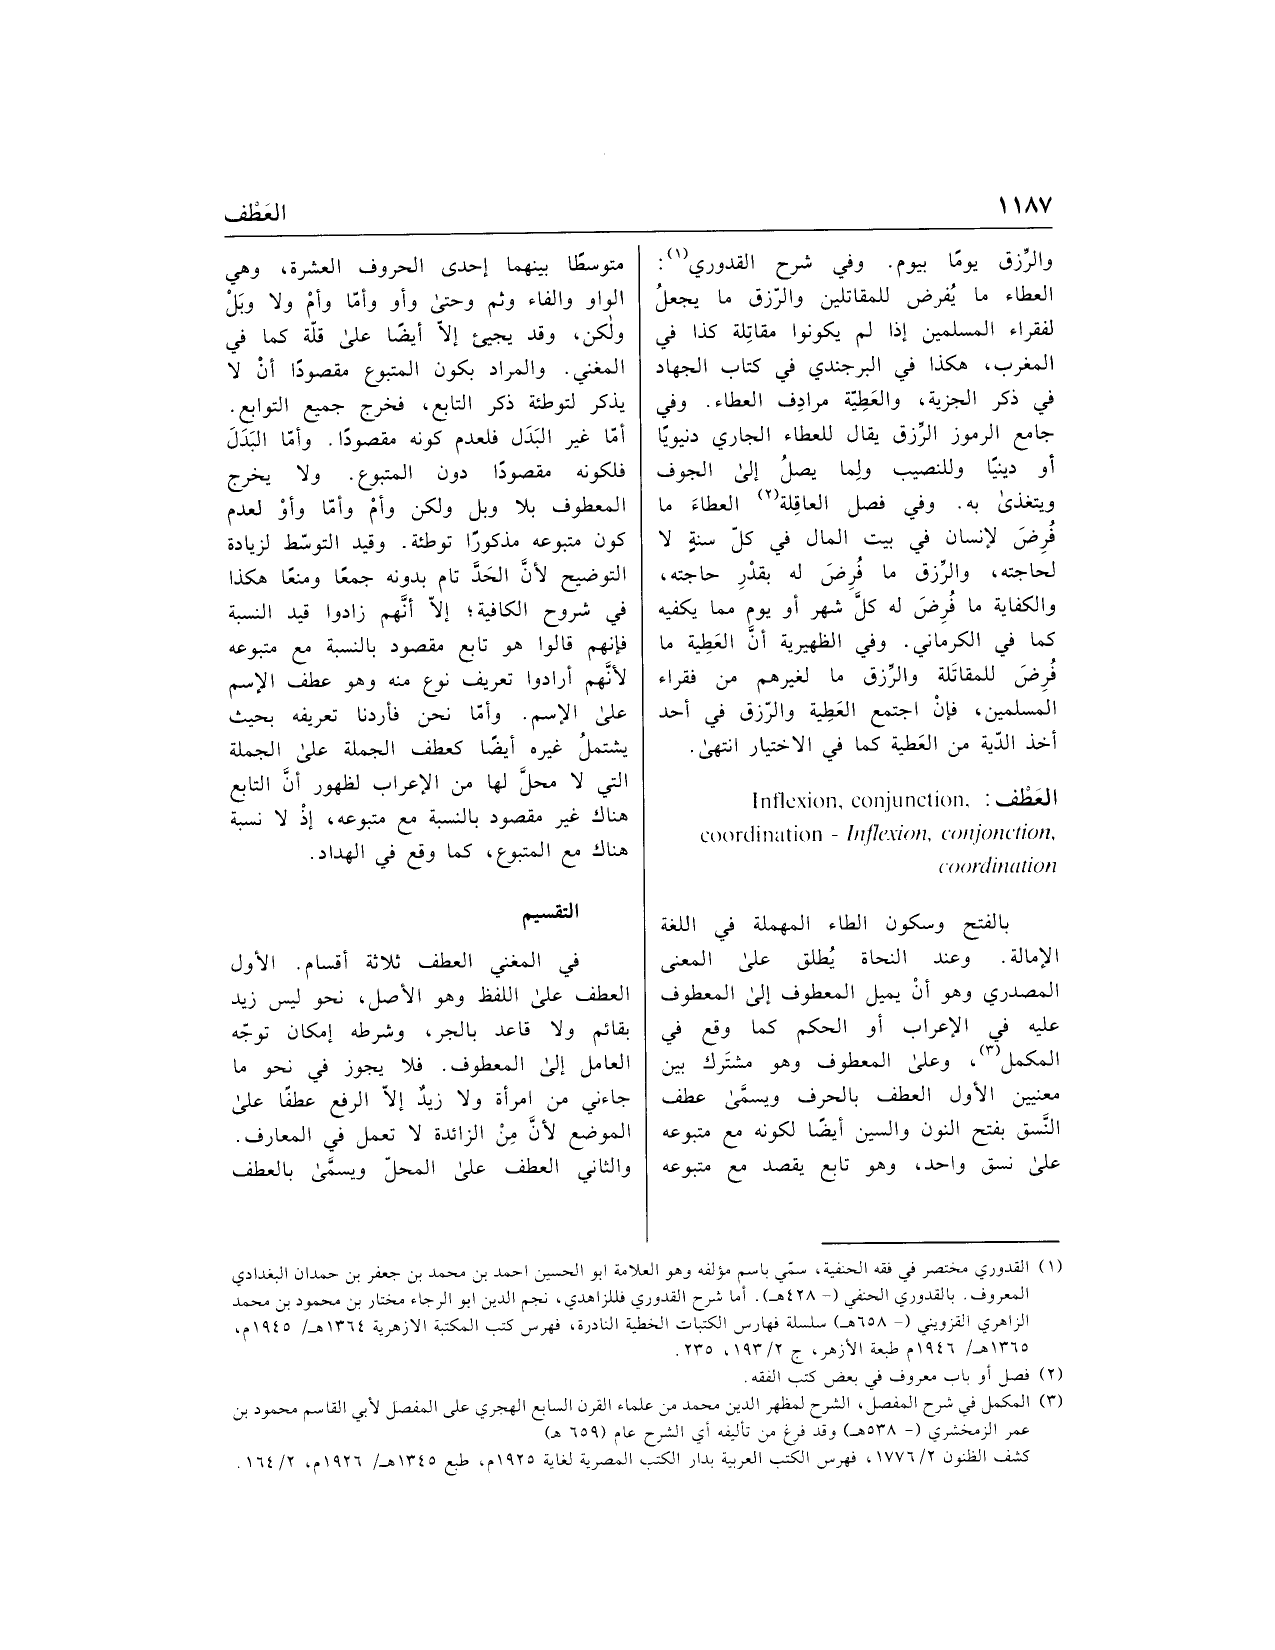 ١١٨٧
العَطْف
والرِّزق يومًا بيوم. وفي شرح القدوري(١):
العطاء ما يُفرض للمقاتلين والرّزق ما يجعلُ
لفقراء المسلمين إذا لم يكونوا مقاتِلة كذا في
المغرب، هكذا في البرجندي في كتاب الجهاد
في ذكر الجزية، والعَطِيّة مرادِف العطاء. وفي
جامع الرموز الرِّزق يقال للعطاء الجاري دنيويًا
أو دينيًا وللنصيب ولِما يصلُ إلىٰ الجوف
ويتغذىٰ به. وفي فصل العاقِلة(٢) العطاءَ ما
فُرِضَ لإنسان في بيت المال في كلّ سنةٍ لا
لحاجته، والرِّزق ما فُرِضَ له بقدْرِ حاجته،
والكفاية ما فُرِضَ له كلَّ شهر أو يوم مما يكفيه
كما في الكرماني. وفي الظهيرية أنَّ العَطِية ما
فُرِضَ للمقاتَلة والرِّزق ما لغيرهم من فقراء
المسلمين، فإنْ اجتمع العَطِية والرّزق في أحد
أخذ الدّية من العَطية كما في الاختيار انتهىٰ.
العَطْف : Inflexion, conjunction,
coordination - Inflexion, conjonction,
coordination
بالفتح وسكون الطاء المهملة في اللغة
الإمالة. وعند النحاة يُطلق علىٰ المعنى
المصدري وهو أنْ يميل المعطوف إلىٰ المعطوف
عليه في الإعراب أو الحكم كما وقع في
المكمل(٣)، وعلىٰ المعطوف وهو مشتَرك بين
معنيين الأول العطف بالحرف ويسمَّىٰ عطف
النَّسق بفتح النون والسين أيضًا لكونه مع متبوعه
علىٰ نسق واحد، وهو تابع يقصد مع متبوعه
متوسطًا بينهما إحدى الحروف العشرة، وهي
الواو والفاء وثم وحتىٰ وأو وأمّا وأمْ ولا وبَلْ
ولٰكن، وقد يجيئ إلاّ أيضًا علىٰ قلّة كما في
المغني. والمراد بكون المتبوع مقصودًا أنْ لا
يذكر لتوطئة ذكر التابع، فخرج جميع التوابع.
أمّا غير البَدَل فلعدم كونه مقصودًا. وأمّا البَدَلَ
فلكونه مقصودًا دون المتبوع. ولا يخرج
المعطوف بلا وبل ولكن وأمْ وأمّا وأوْ لعدم
كون متبوعه مذكورًا توطئة. وقيد التوسّط لزيادة
التوضيح لأنَّ الحَدَّ تام بدونه جمعًا ومنعًا هكذا
في شروح الكافية؛ إلاّ أنَّهم زادوا قيد النسبة
فإنهم قالوا هو تابع مقصود بالنسبة مع متبوعه
لأنَّهم أرادوا تعريف نوع منه وهو عطف الإسم
علىٰ الإسم. وأمّا نحن فأردنا تعريفه بحيث
يشتملُ غيره أيضًا كعطف الجملة علىٰ الجملة
التي لا محلَّ لها من الإعراب لظهور أنَّ التابع
هناك غير مقصود بالنسبة مع متبوعه، إذْ لا نسبة
هناك مع المتبوع، كما وقع في الهداد.
التقسيم
في المغني العطف ثلاثة أقسام. الأول
العطف علىٰ اللفظ وهو الأصل، نحو ليس زيد
بقائم ولا قاعد بالجر، وشرطه إمكان توجّه
العامل إلىٰ المعطوف. فلا يجوز في نحو ما
جاءني من امرأة ولا زيدٌ إلاّ الرفع عطفًا علىٰ
الموضع لأنَّ مِنْ الزائدة لا تعمل في المعارف.
والثاني العطف علىٰ المحلّ ويسمَّىٰ بالعطف
(١) القدوري مختصر في فقه الحنفية، سمّي باسم مؤلفه وهو العلامة ابو الحسين احمد بن محمد بن جعفر بن حمدان البغدادي
المعروف. بالقدوري الحنفي (- ٤٢٨هـ). أما شرح القدوري فللزاهدي، نجم الدين ابو الرجاء مختار بن محمود بن محمد
الزاهري القزويني (- ٦٥٨هـ) سلسلة فهارس الكتبات الخطية النادرة، فهرس كتب المكتبة الازهرية ١٣٦٤هـ/ ١٩٤٥م،
١٣٦٥هـ/ ١٩٤٦م طبعة الأزهر، ج ٢/ ١٩٣، ٢٣٥.
(٢) فصل أو باب معروف في بعض كتب الفقه.
(٣) المكمل في شرح المفصل، الشرح لمظهر الدين محمد من علماء القرن السابع الهجري على المفصل لأبي القاسم محمود بن
عمر الزمخشري (- ٥٣٨هـ) وقد فرغ من تأليفه أي الشرح عام (٦٥٩ هـ)
كشف الظنون ٢/ ١٧٧٦، فهرس الكتب العربية بدار الكتب المصرية لغاية ١٩٢٥م، طبع ١٣٤٥هـ/ ١٩٢٦م، ٢/ ١٦٤.